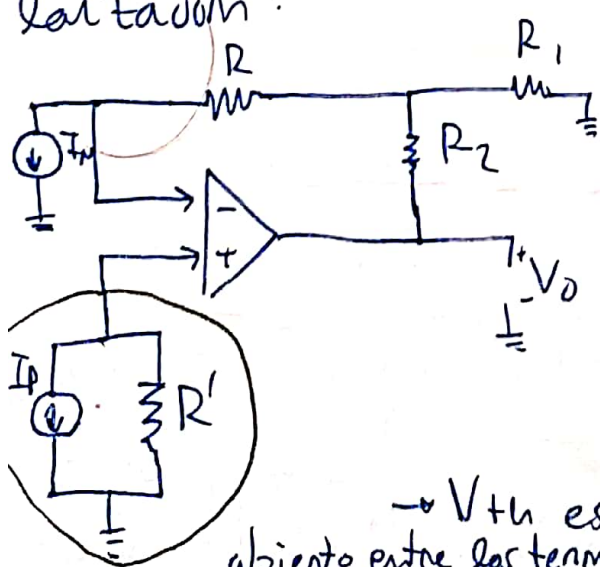 R
R1
IN
R2
-
+
+
Vo
-
Ip
R'
→ Vth es
abierto entre las